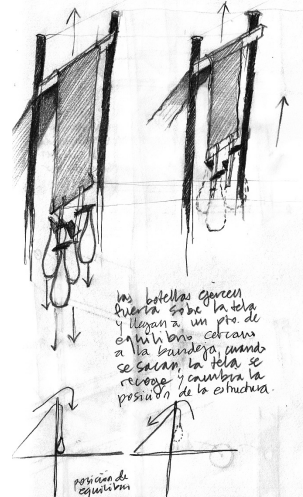 las botellas ejercen
fuerza sobre la tela
y llegan a un pto. de
equilibrio cercano
a la bandeja, cuando
se sacan, la tela se
recoge y cambia la
posición de la estructura.
posición de
equilibrio